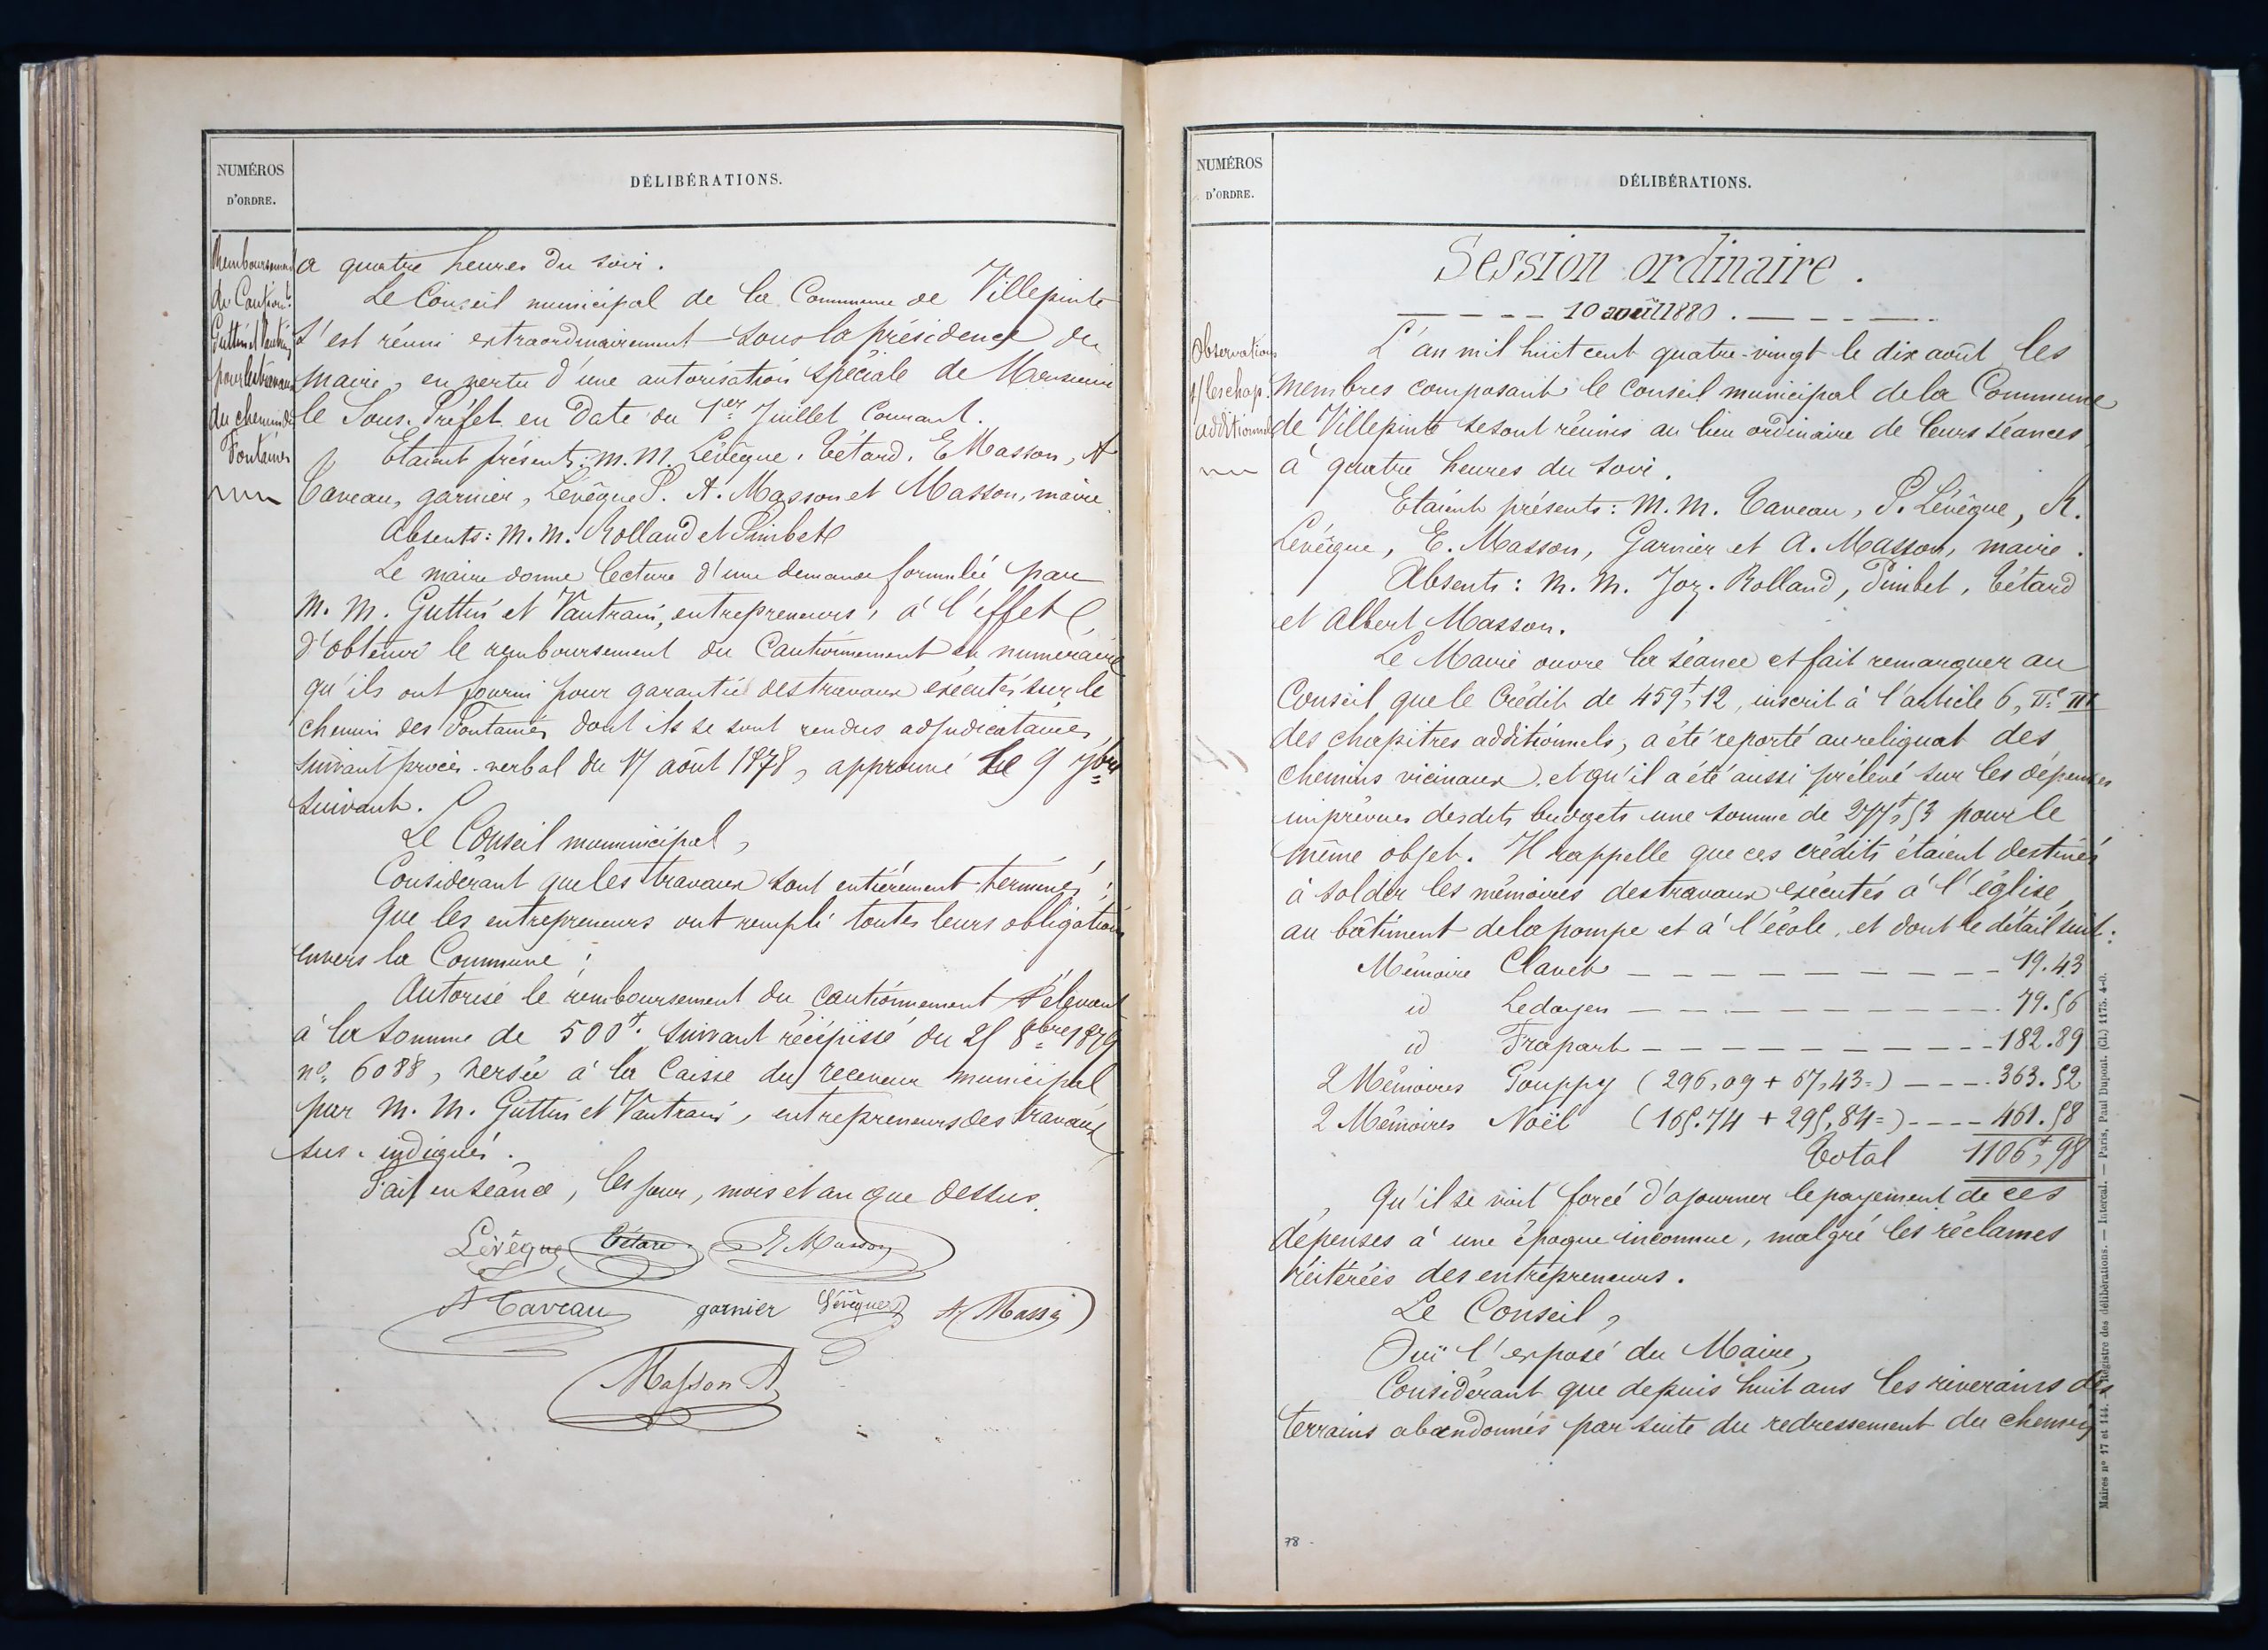 NUMÉROS
D'ORDRE.
DÉLIBÉRATIONS.
Remboursement
du Cautiont.
Guttin et Vautrin
pour les travaux
du chemin des
Fontaines
à quatre heures du soir.
Le Conseil municipal de la Commune de Villepinte
s'est réuni extraordinairement sous la présidence du
maire, en vertu d'une autorisation spéciale de Monsieur
le Sous-Préfet en date du 1er Juillet Courant.
Etaient présents: M.M. Lévêque, Bétard, E Masson, A
Caveau, garnier, Lévêque P. A. Masson et Masson, maire
Absents: M.M. Rolland et Pimbet
Le maire donne lecture d'une demande formulée par
M.M. Guttin et Vautrain, entrepreneurs, à l'effet
d'obtenir le remboursement du Cautionnement en numéraire
qu'ils ont fourni pour garantie des travaux exécutés sur le
chemin des Fontaines dont ils se sont rendus adjudicataires,
suivant procès-verbal du 17 août 1878, approuvé le 9 7bre
suivant.
Le Conseil mumnicipal,
Considérant que les travaux sont entièrement terminés;
Que les entrepreneurs ont rempli toutes leurs obligations
envers la Commune;
Autorise le remboursement du cautionnement s'élevant
à la somme de 500f. suivant récépissé du 25 8bre 1879
no. 6088, versée à la Caisse du receveur municipal
par M.M. Guttin et Vautrain, entrepreneurs des travaux
sus-indiqués.
Fait en séance, les jour, mois et an que dessus.
Lévêque Bétard E Masson
A Caveau garnier Lévêque A Masson
Masson A
NUMÉROS
D'ORDRE.
DÉLIBÉRATIONS.
Session ordinaire.
10 août 1880.
Observations
s/ les chap.
additionnels
L'an mil huit cent quatre-vingt le dix août les
membres composant le Conseil municipal de la Commune
de Villepinte se sont réunis au lieu ordinaire de leurs séances
à quatre heures du soir.
Etaient présents: M.M. Caveau, P. Lévêque, A.
Lévêque, E. Masson, Garnier et A. Masson, maire.
Absents: M.M. Joz. Rolland, Pimbet, Bétard
et Albert Masson.
Le Maire ouvre la séance et fait remarquer au
Conseil que le Crédit de 459f,12, inscrit à l'article 6,
des chapitres additionnels, a été reporté au reliquat des
chemins vicinaux et qu'il a été aussi prélevé sur les dépenses
imprévues desdits budgets une somme de 277f,53 pour le
même objet. Il rappelle que ces crédits étaient destinés
à solder les mémoires des travaux exécutés à l'église,
au bâtiment de la pompe et à l'école, et dont le détail suit:
Mémoire Clavet 19.43
id Ledoyen 79.56
id Frapart 182.89
2 Mémoires Gouppy (296,09 + 67,43=) 363.52
2 Mémoires Noël (165.74 + 295,84=) 461.58
Total 1106f,98
Qu'il se voit forcé d'ajourner le payement de ces
dépenses à une époque inconnue, malgré les réclames
réitérées des entrepreneurs.
Le Conseil,
Ouï l'exposé du Maire,
Considérant que depuis huit ans les riverains des
terrains abandonnés par suite du redressement du chemin
78
Maires no 17 et 144. — Registre des délibérations. — Intercal. — Paris, Paul Dupont. (Cl.) 1175. 4-0.